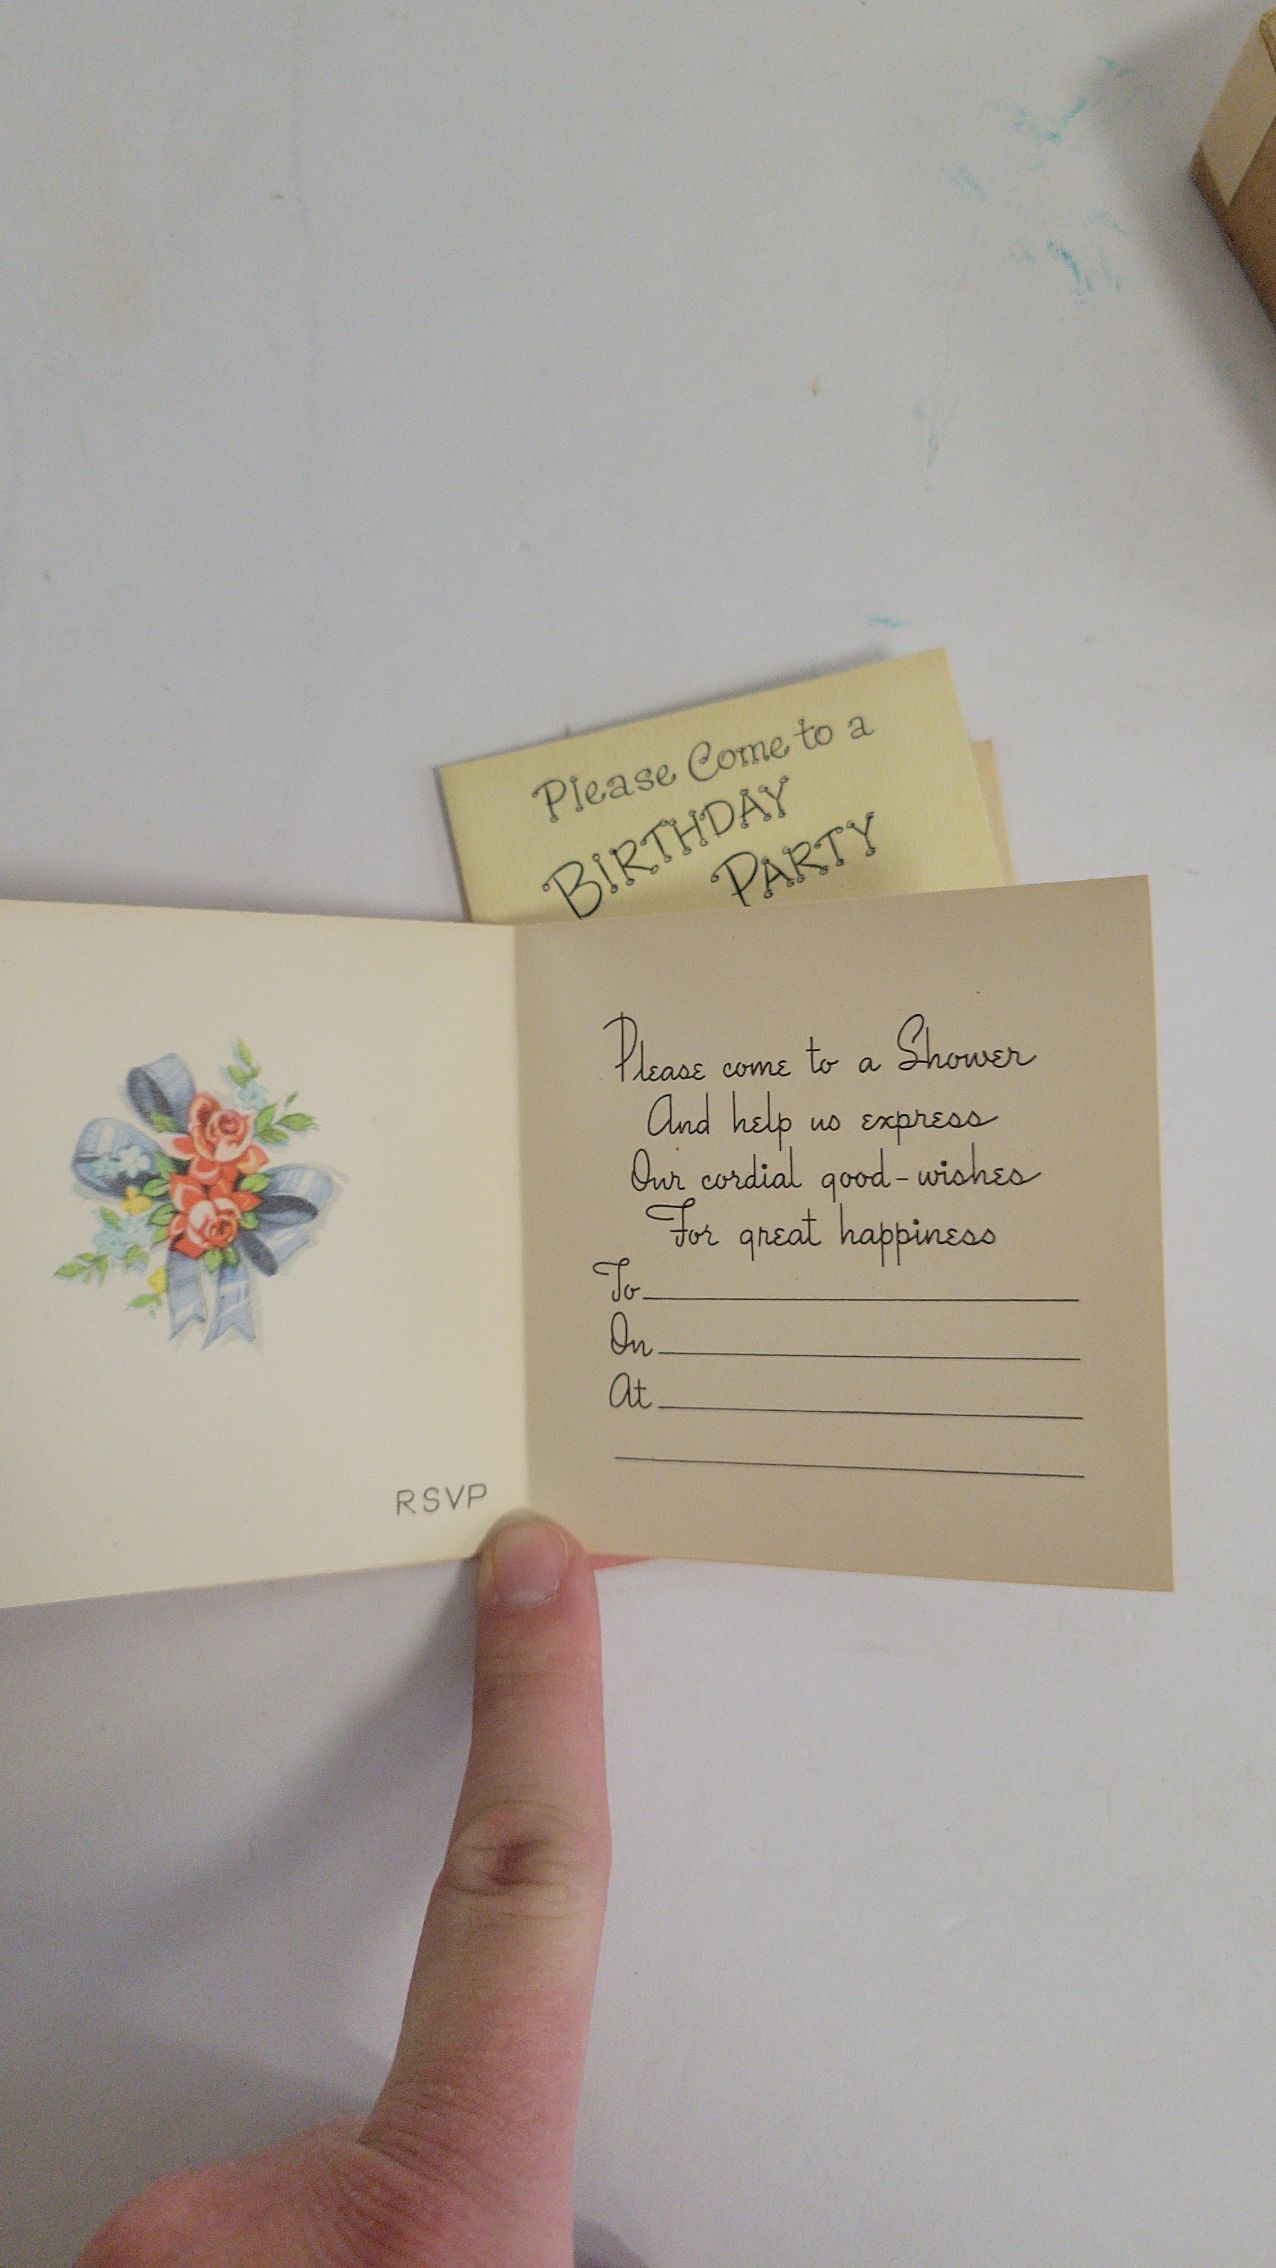 Please Come to a
BIRTHDAY
PARTY
RSVP
Please come to a Shower
And help us express
Our cordial good-wishes
For great happiness
To
On
At